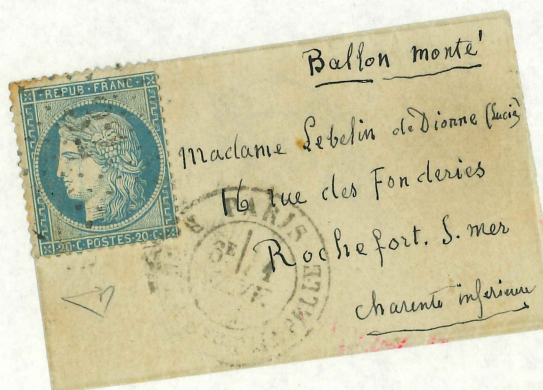 Ballon monté
REPUB·FRANC·
20·C·POSTES·20·C·
Madame Lebelin de Dionne (Lucie)
16 rue des Fonderies
Rochefort. S. mer
Charente inférieure
PARIS